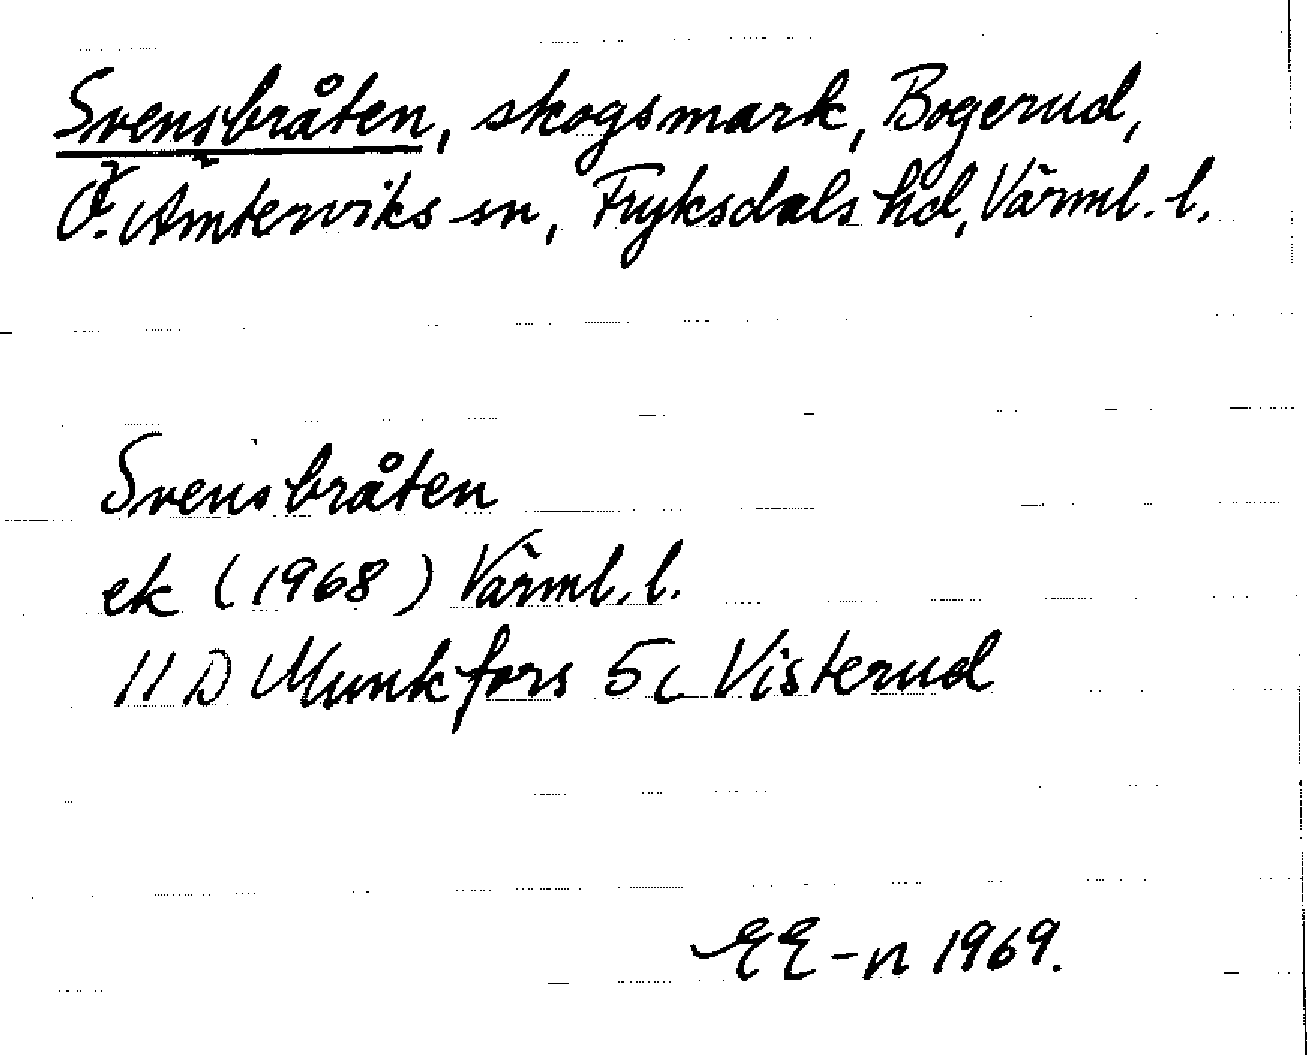 Svensbråten, skogsmark, Bogerud,
Ö. Ämterviks sn, Fryksdals hd, Värml. l.
Svensbråten
ek (1968) Värml. l.
11 D Munkfors 5c Visterud
EE-n 1969.